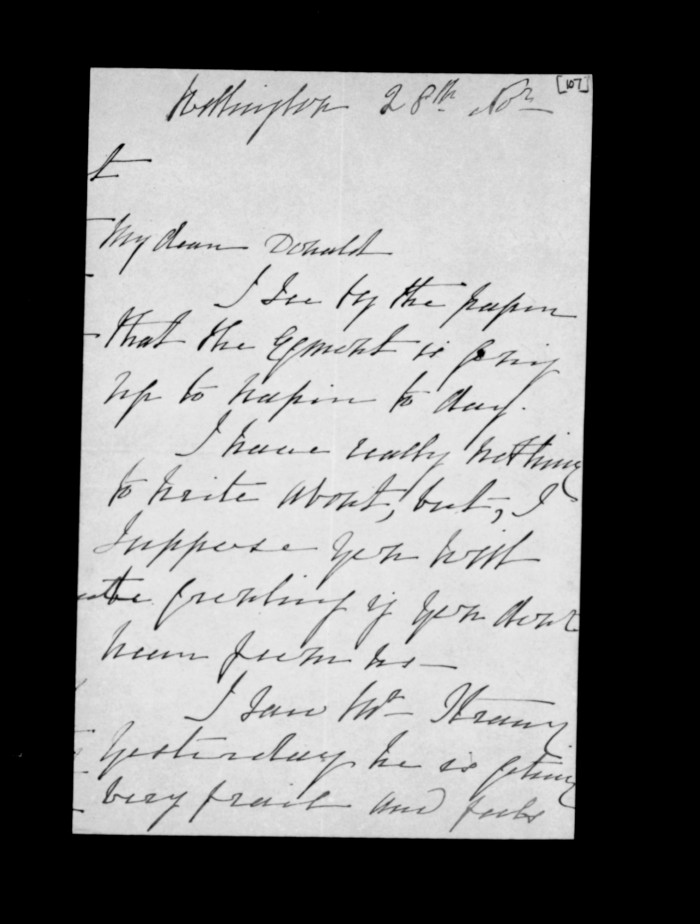 [107]
Wellington 28th Nov
My dear Donald
I see by the paper
that the Egmont is going
up to Napier to day.
I have really nothing
to write about, but, I
suppose you will
be growling if you dont
hear from us —
I saw Mr Strang
yesterday he is getting
very frail and feels